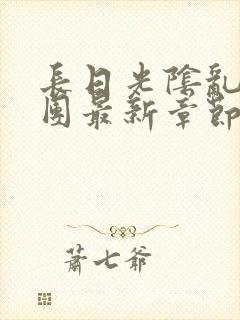 長日光陰亂
團最新章節
蕭七爺